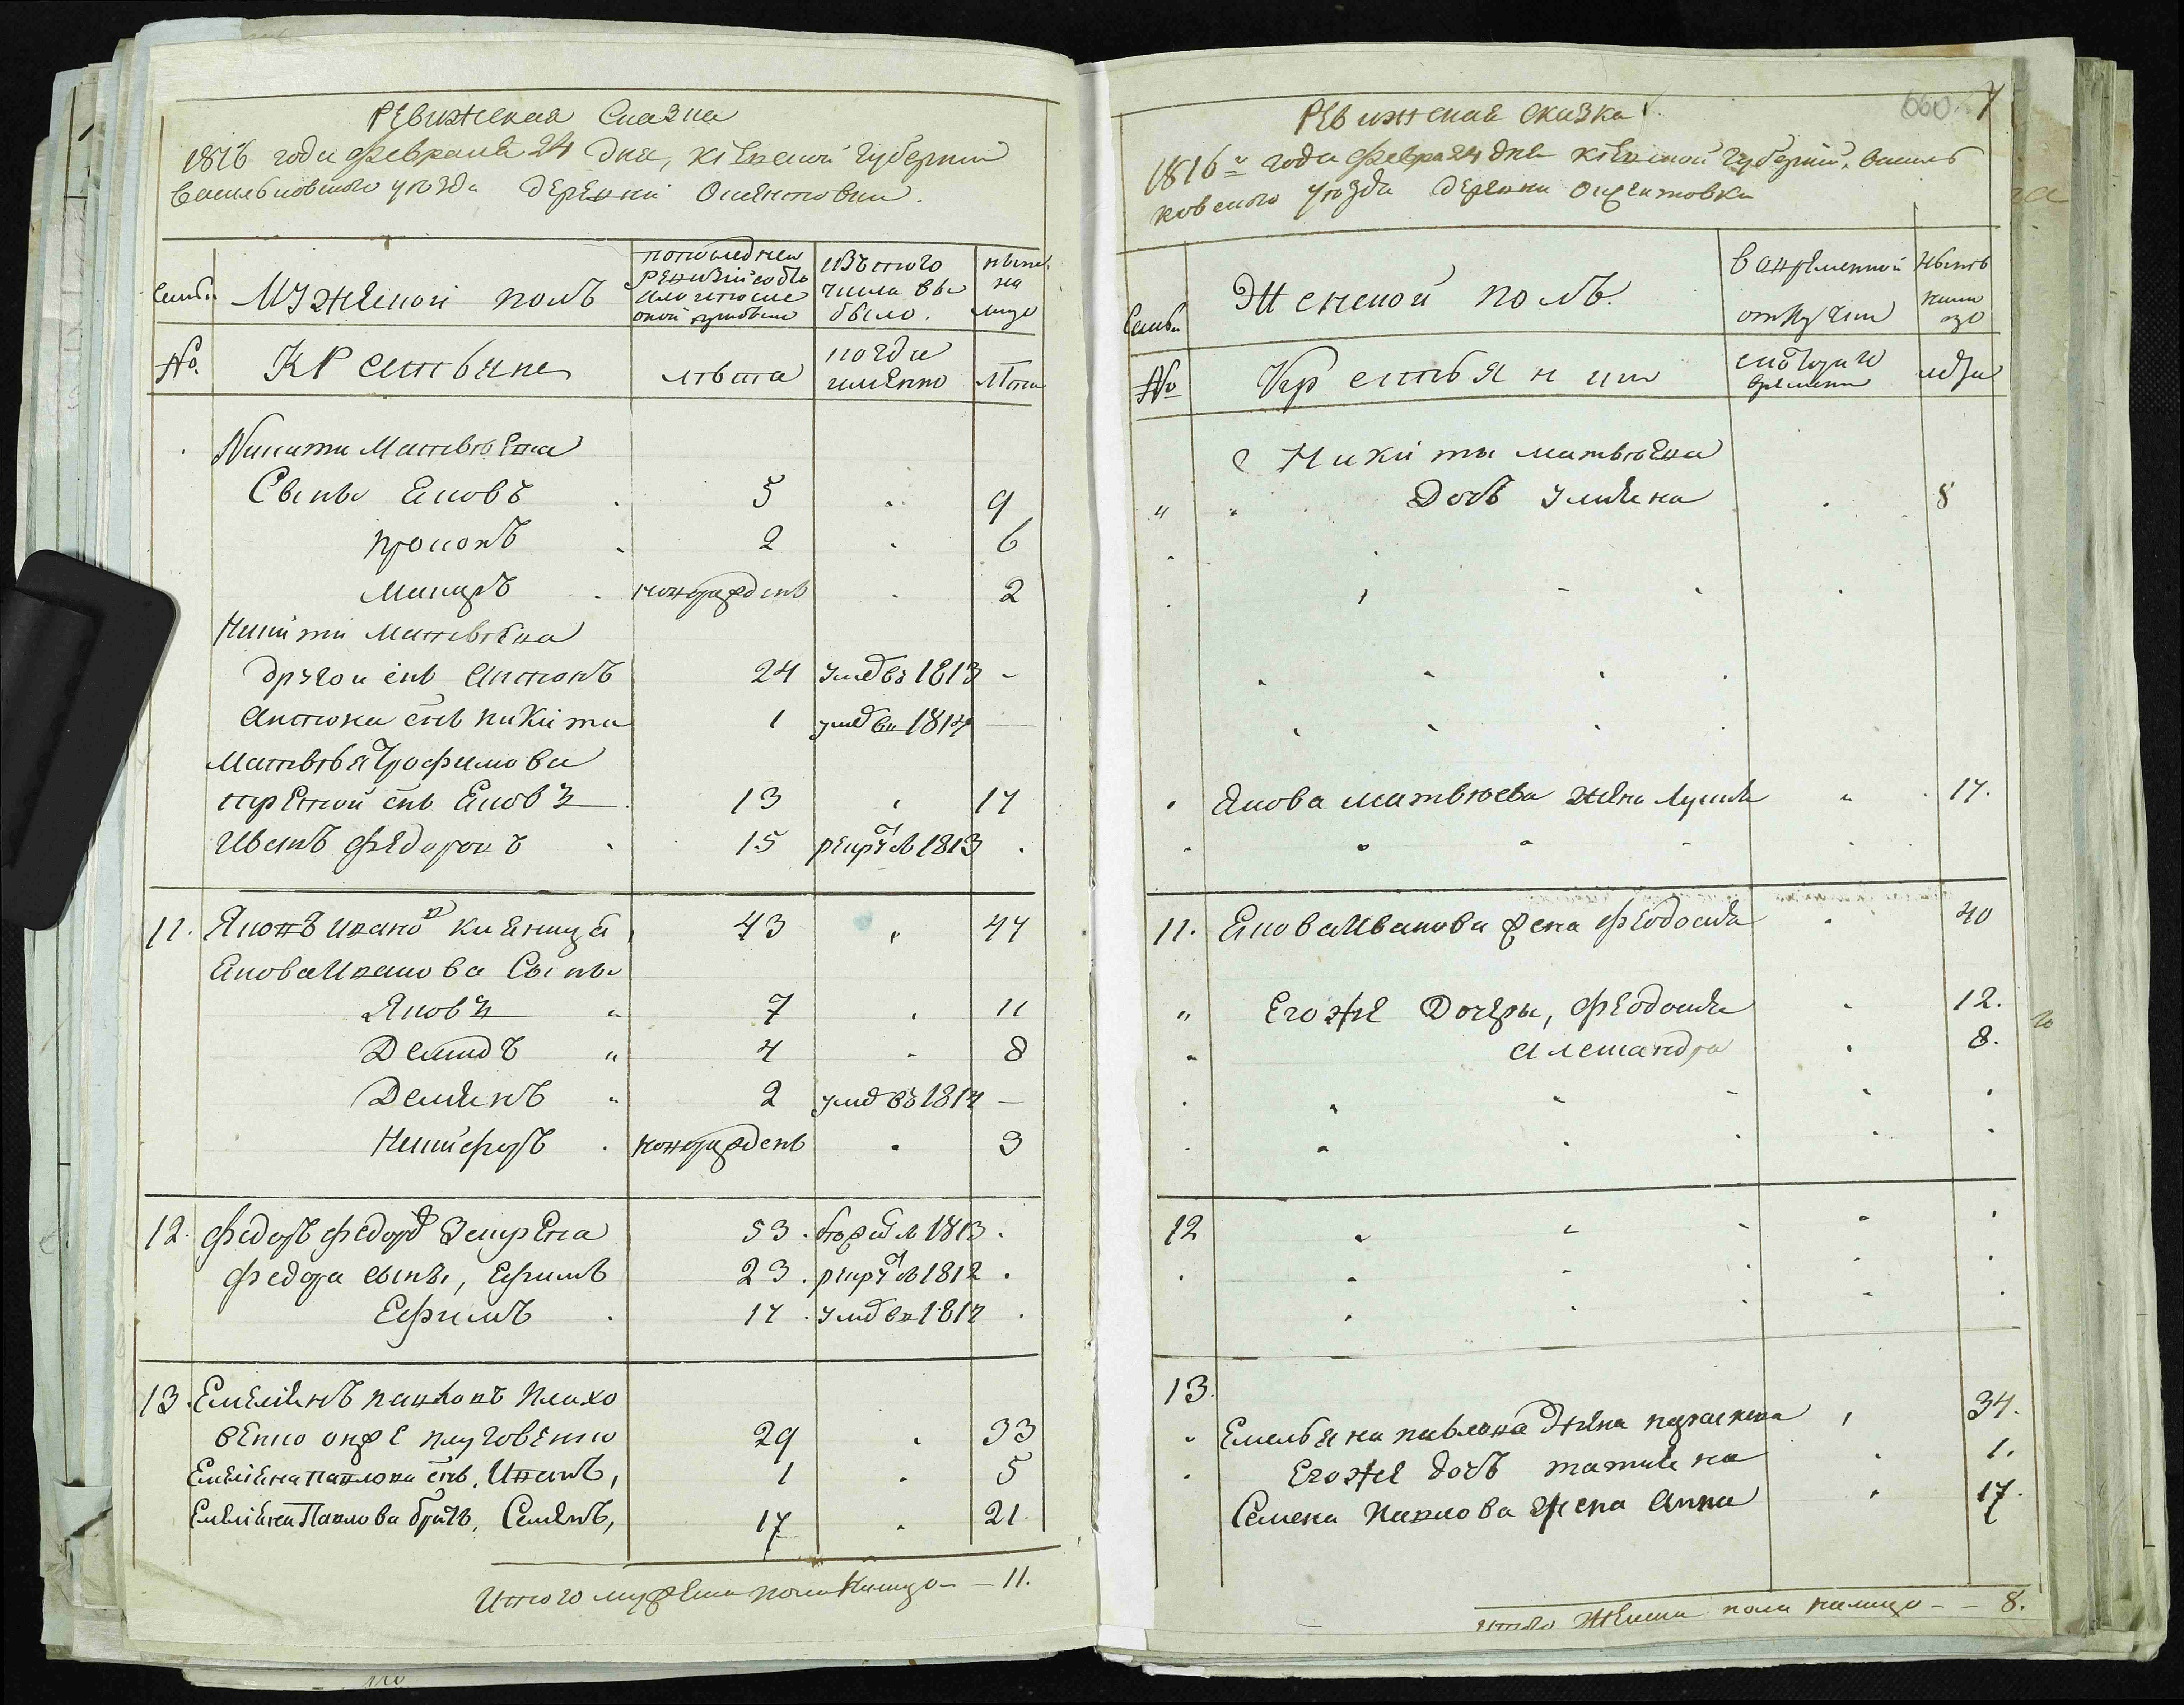 Ревижская Сказка
1816 года Февраля 24 дня, кіевской Губерніи
васильковского уѣзда деревни Ощентовки.
Семьи
Мужеской полъ
попоследней ревизіи состояло и после оной прибыло
изътого числа выбыло.
нынѣ на лицо
№.
Крестьяне
лѣта
когда именно
лѣта
Никиты Матвѣева
Сыны Яковъ 5 9
прокопъ 2 6
Макаръ новорожденъ 2
Никиты Матвѣева
другои снъ Антонъ 24 умеръ 1813 -
Антона снъ никита 1 умер въ 1814 —
Матвѣя Трофимова
третой снъ Яковъ 13 17
Иванъ Федоровъ 15 рекру 1813
11. Яковъ Ивановъ кияница 43 47
Якова Иванова Сыны
Яковъ " 7 11
Демидъ " 4 8
Демянъ " 2 умер въ 1814 —
Никифоръ новорожденъ 3
12. Федоръ Федоров 53 1813
Федора сыны, Ефимъ 23 рекру 1812
Ефимъ 17 умер въ 1814
13. Емелiянъ павловъ Плахо
тенко онже плуговенко 29 33
Емелiяна павлова снъ, Иванъ, 1 5
Емелiяна Павлова братъ, Семенъ, 17 21
Итого мужеска пола налицо — 11.
Ревижская сказка
7
1816го года Февра 24 дня кіевской Губерніи, василь
ковского уѣзда деревни ощентовки
Семьи
Женской полъ.
вовременной отлучки
нынѣ налицо
№
Крестьянки
скотораго времени
лѣта
Никиты матвѣева
" Дочь Улияна 8
Якова матвѣева жена 17.
11. Якова Иванова жена Феодосия 40
" Егоже Дочеры, Феодосия 12.
" Александра 8.
12
13.
Емельяна павлова Жена параскева 34.
Егоже дочь татияна 1.
Семена Павлова жена Анна 17.
итого Женска пола налицо - - 8.